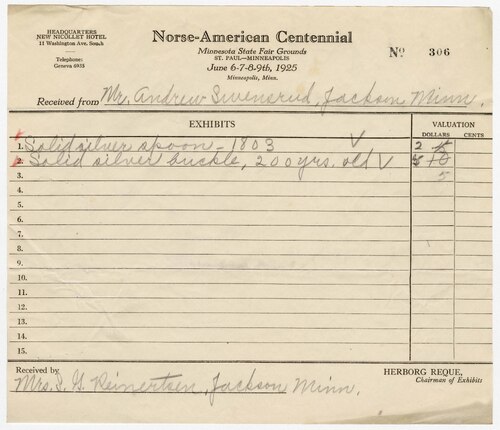 HEADQUARTERS
NEW NICOLLET HOTEL
11 Washington Ave. South
Telephone:
Geneva 6935
Norse-American Centennial
Minnesota State Fair Grounds
ST. PAUL—MINNEAPOLIS
June 6-7-8-9th, 1925
Minneapolis, Minn.
No 306
Received from Mr. Andrew Swensrud, Jackson Minn.
EXHIBITS
VALUATION
DOLLARS CENTS
1. Solid silver spoon - 1803 V 2
2. Solid silver buckle, 200 yrs. old V 10
3. 5
4.
5.
6.
7.
8.
9.
10.
11.
12.
13.
14.
15.
Received by Mrs. S. G. Reinertsen, Jackson Minn.
HERBORG REQUE,
Chairman of Exhibits